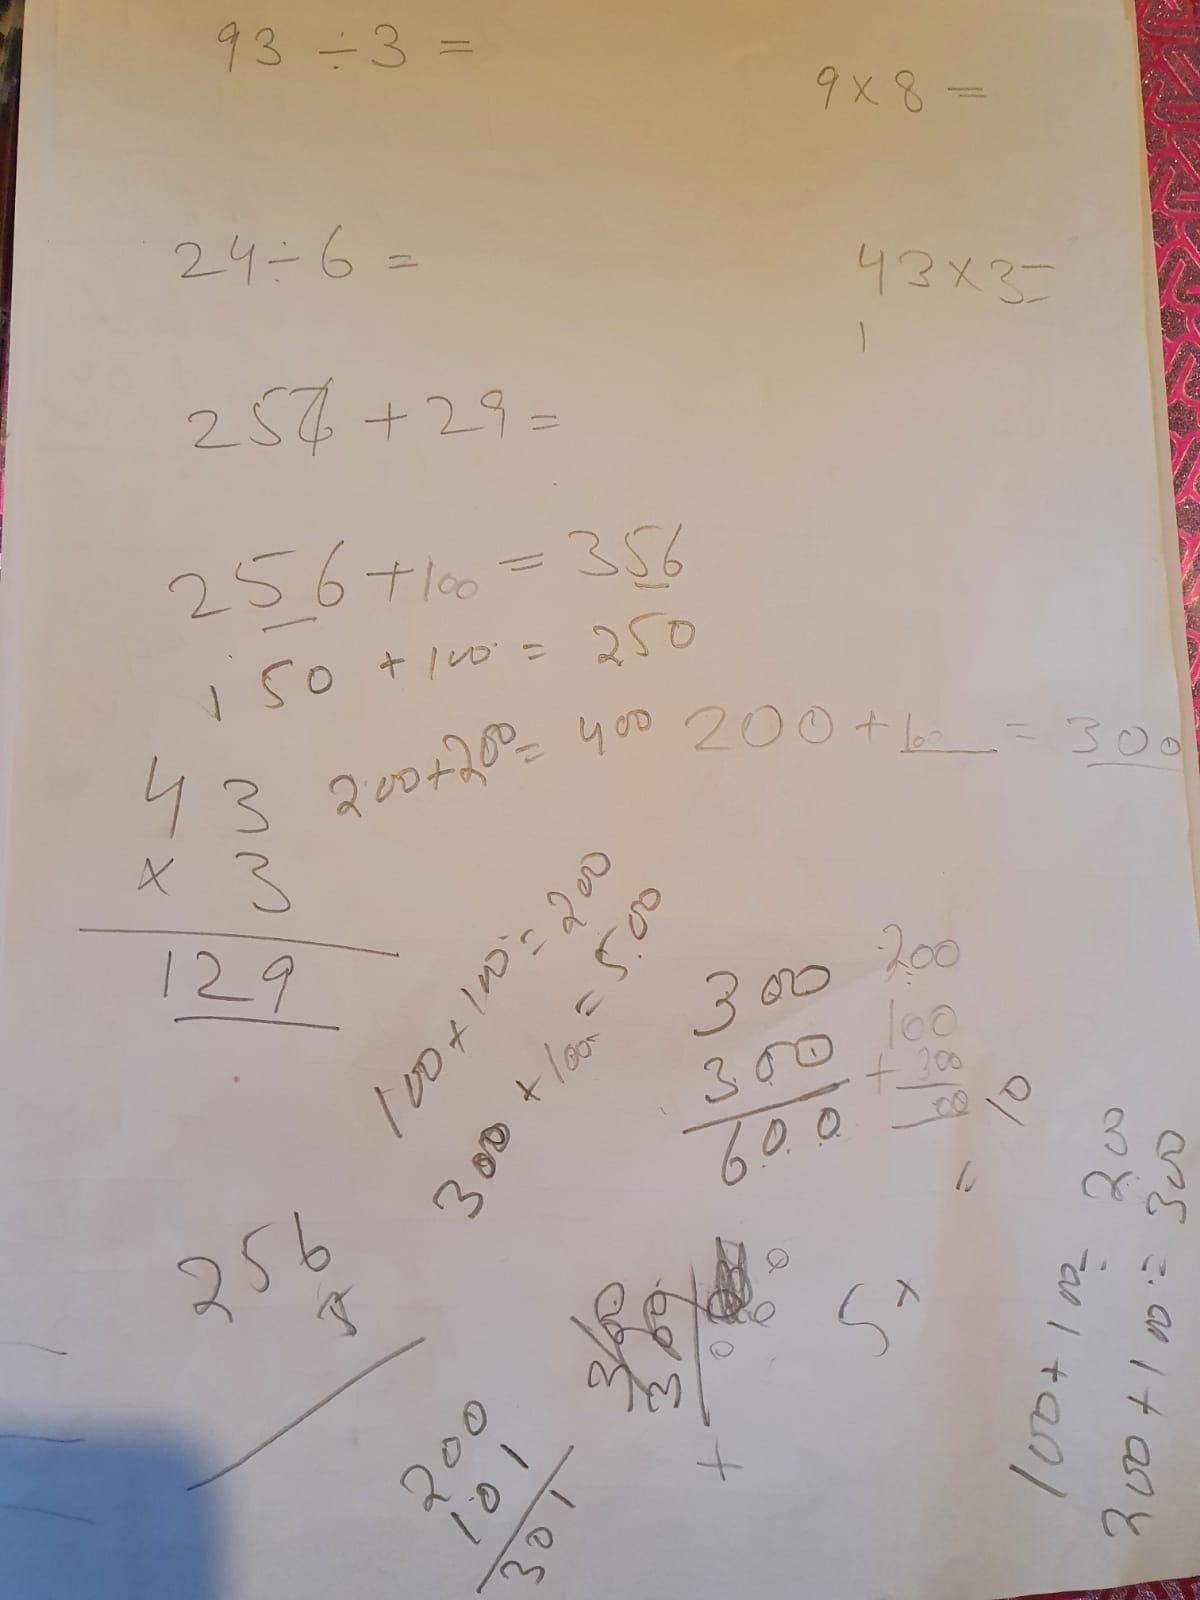 93 ÷ 3 =
9 x 8 =
24 ÷ 6 =
43 x 3 =
1
25 + 29 =
256 + 100 = 356
150 + 100 = 250
200 + 200 = 400
200 + 100 = 300
43
x 3
129
100 + 100 = 200
300 + 100 = 500
300
300
600
200
100
+ 300
00
10
=
256
200
101
301
300
300
+
5 x
100 + 100 = 200
200 + 100 = 300